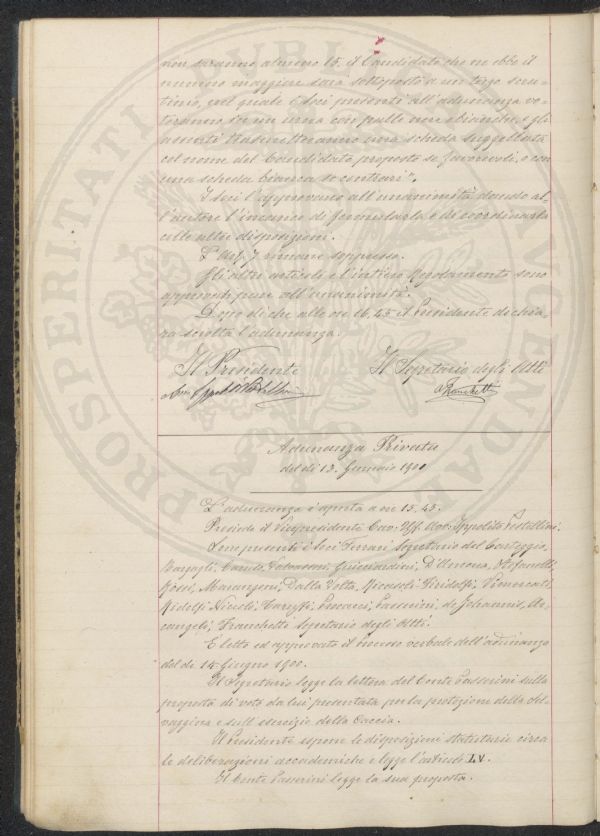 non saranno almeno 15, il Candidato che ne ebbe il
numero maggiore sarà sottoposto a un terzo scru-
tinio, nel quale i Soci presenti all'adunanza vo-
teranno in un urna con palle nere e bianche, e gli
assenti trasmetteranno una scheda suggellata
col nome del Candidato proposto se favorevoli, o con
una scheda bianca se contrari".
I soci l'approvano all'unanimità dando al-
l'autore l'incarico di formularla e di coordinarla
colle altre disposizioni.
L'Art. 7 rimane soppresso.
Gli altri articoli e l'intiero Regolamento sono
approvati pure all'unanimità.
Dopo di che alle ore 16,45 il Presidente dichia-
ra sciolta l'adunanza.
Il Presidente
Il Segretario degli Atti
Franchetti
Adunanza Privata
del dì 13 Gennaio 1901
L'adunanza è aperta a ore 15.45.
Presiede il Vicepresidente Cav: Uff. Avv: Ippolito Pestellini:
Sono presenti i Soci Ferrari Segretario del Carteggio,
Bargagli, Guicciardini, D'Ancona, Stefanelli,
Rossi, Marangoni, Dalla Volta, Ricasoli Firidolfi, Vimercati,
Ridolfi Niccolò, Caruffi, Passerini, de Johannis, Ar-
cangeli, Franchetti Segretario degli Atti.
È letto ed approvato il processo verbale dell'adunanza
del dì 14 Giugno 1900.
Il Segretario legge la lettera del Conte Passerini sulla
proposta di voto da lui presentata per la protezione della sel-
vaggina e sull'esercizio della Caccia.
Il Presidente espone le disposizioni statutarie circa
le deliberazioni accademiche e legge l'articolo LV.
Il Conte Passerini legge la sua proposta.
PROSPERITATI PUBLICAE AUGENDAE